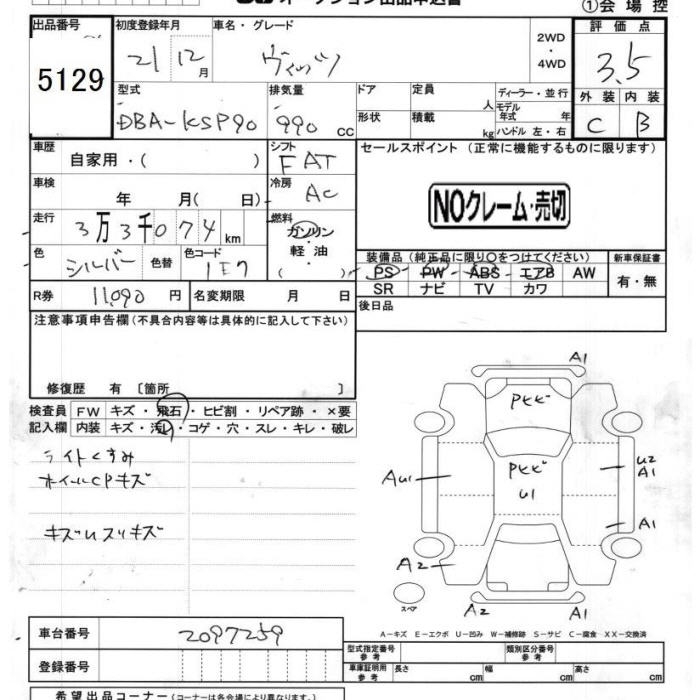 オークション出品申込書 ①会場控
出品番号 初度登録年月 車名・グレード 評価点
5129 21 12月 ヴィッツ 2WD・4WD 3.5
型式 排気量 ドア 定員 人 ディーラー・並行 外装 内装
DBA-KSP90 990 CC 形状 積載 kg モデル年式 年 ハンドル 左・右 C B
車歴 自家用・( ) シフト FAT セールスポイント (正常に機能するものに限ります)
車検 年 月( 日) 冷房 AC
NOクレーム・売切
走行 3万3千074km 燃料 ガソリン・軽油・( )
色 シルバー 色替 色コード 1E7 装備品 (純正品に限り○をつけてください) 新車保証書
PS PW ABS エアB AW 有・無
SR ナビ TV カワ
R券 11090円 名変期限 月 日 後日品
注意事項申告欄 (不具合内容等は具体的に記入して下さい)
修復歴 有 〔箇所 〕
検査員記入欄 FW キズ・飛石・ヒビ割・リペア跡・×要
内装 キズ・汚れ・コゲ・穴・スレ・キレ・破レ
ライトくすみ
ホイールCPキズ
キズUスリキズ
A1
P
AU1 P U1 U2 A1
A1
A2
スペア A2 A1
A-キズ E-エクボ U-凹み W-補修跡 S-サビ C-腐食 XX-交換済
車台番号 2097259
型式指定番号 参考 類別区分番号 参考
登録番号 車庫証明用 参考 長さ cm 幅 cm 高さ cm
希望出品コーナー (コーナーは各会場により異なります。)